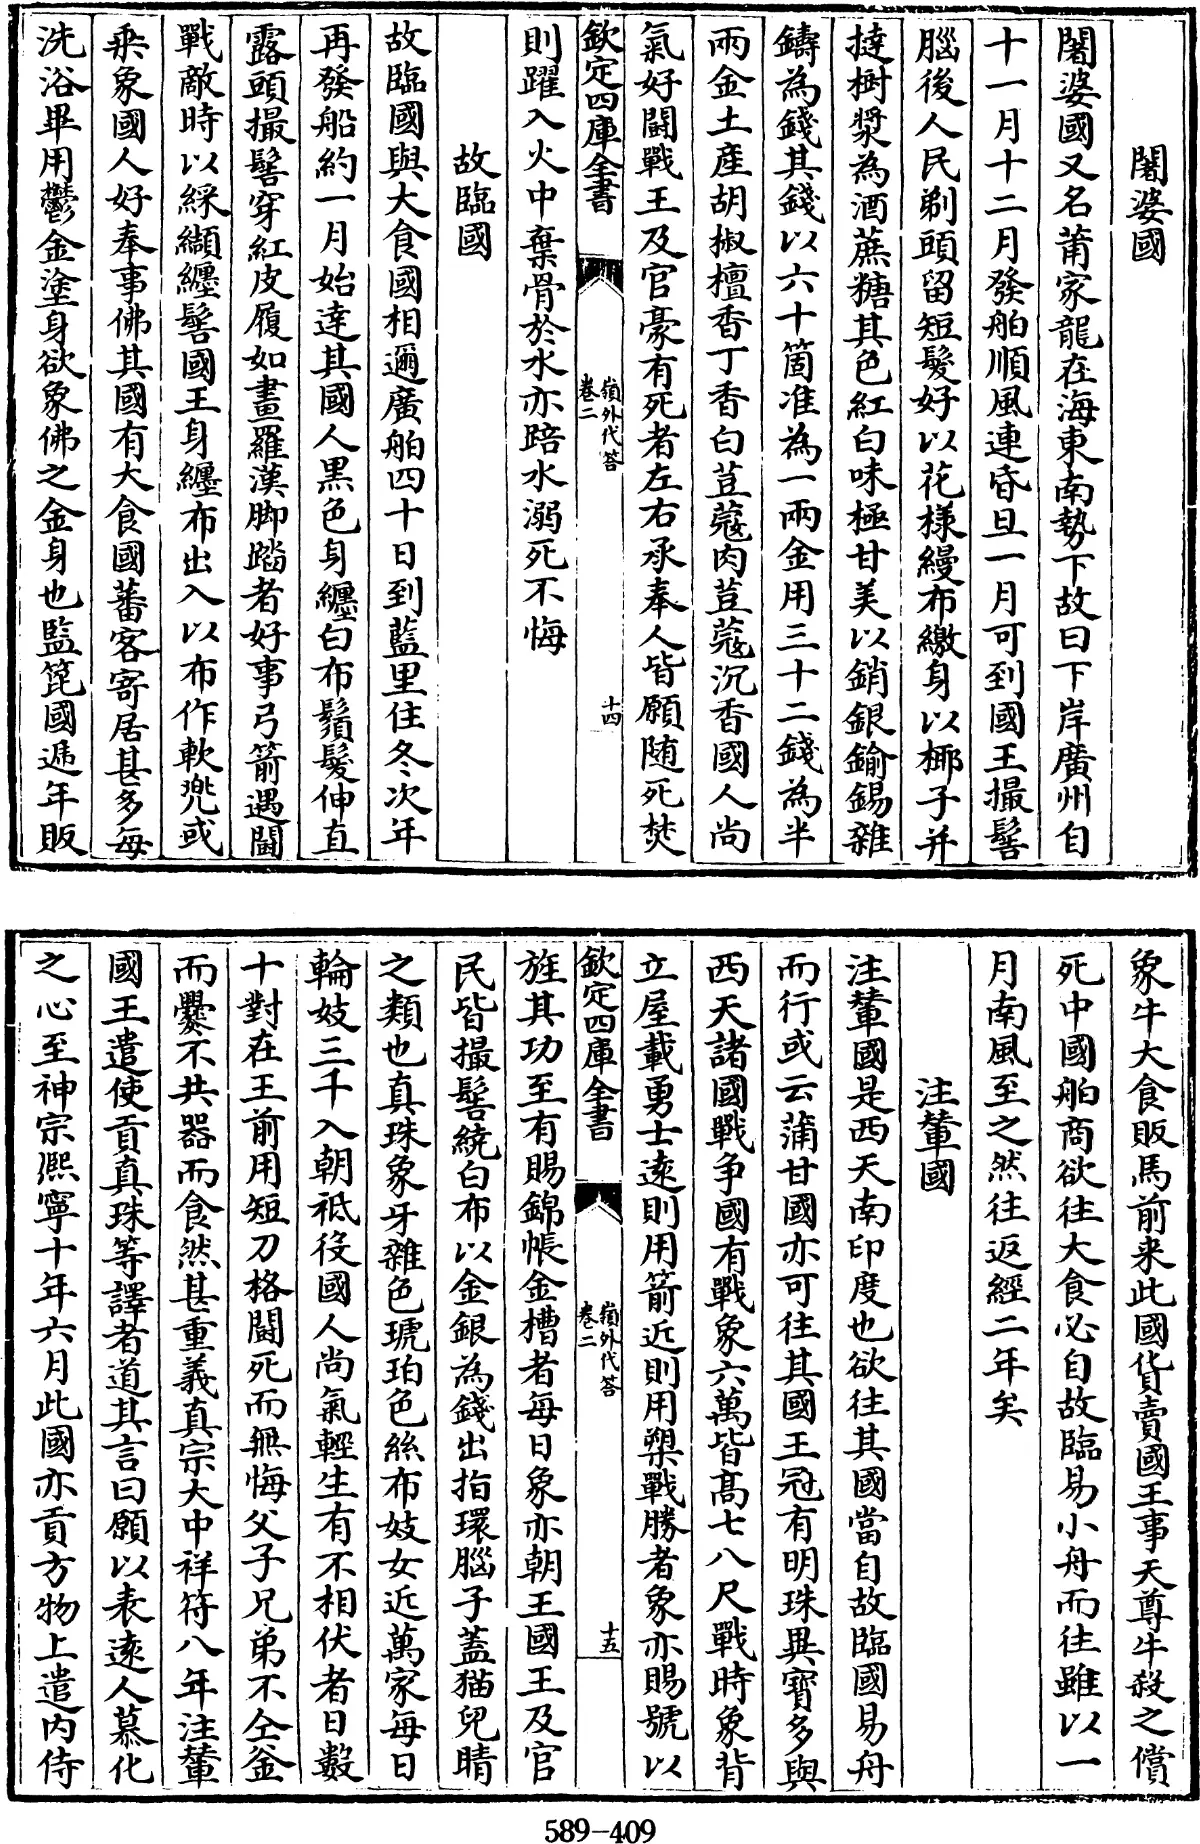 闍婆國
闍婆國又名莆家龍在海東南勢下故曰下岸廣州自
十一月十二月發舶順風連昏旦一月可到國王撮髻
腦後人民剃頭留短髮好以花樣縵布繳身以椰子并
撻樹漿為酒蔗糖其色紅白味極甘美以銷銀鍮錫雜
鑄為錢其錢以六十箇准為一兩金用三十二錢為半
兩金土産胡椒檀香丁香白荳蔻肉荳蔻沉香國人尚
氣好鬬戰王及官豪有死者左右承奉人皆願随死焚
欽定四庫全書 嶺外代答 卷二 十四
則躍入火中棄骨於水亦踣水溺死不悔
故臨國
故臨國與大食國相邇廣舶四十日到藍里住冬次年
再發船約一月始逹其國人黒色身纒白布鬚髮伸直
露頭撮髻穿紅皮履如畫羅漢脚踏者好事弓箭遇鬬
戰敵時以綵纈纒髻國王身纒布出入以布作軟兠或
乘象國人好奉事佛其國有大食國蕃客寄居甚多每
洗浴畢用鬱金塗身欲象佛之金身也監篦國逓年販
象牛大食販馬前來此國貨賣國王事天尊牛殺之償
死中國舶商欲往大食必自故臨易小舟而往雖以一
月南風至之然往返經二年矣
注輦國
注輦國是西天南印度也欲往其國當自故臨國易舟
而行或云蒲甘國亦可往其國王冠有明珠異寳多與
西天諸國戰爭國有戰象六萬皆髙七八尺戰時象背
立屋載勇士逺則用箭近則用槊戰勝者象亦賜號以
欽定四庫全書 嶺外代答 卷二 十五
旌其功至有賜錦帳金槽者每日象亦朝王國王及官
民皆撮髻繞白布以金銀為錢出指環腦子蓋猫兒睛
之類也真珠象牙雜色琥珀色絲布妓女近萬家每日
輪妓三千入朝祗役國人尚氣輕生有不相伏者日數
十對在王前用短刀格鬬死而無悔父子兄弟不仝釡
而爨不共器而食然甚重義真宗大中祥符八年注輦
國王遣使貢真珠等譯者道其言曰願以表逺人慕化
之心至神宗熈寧十年六月此國亦貢方物上遣内侍
589-409